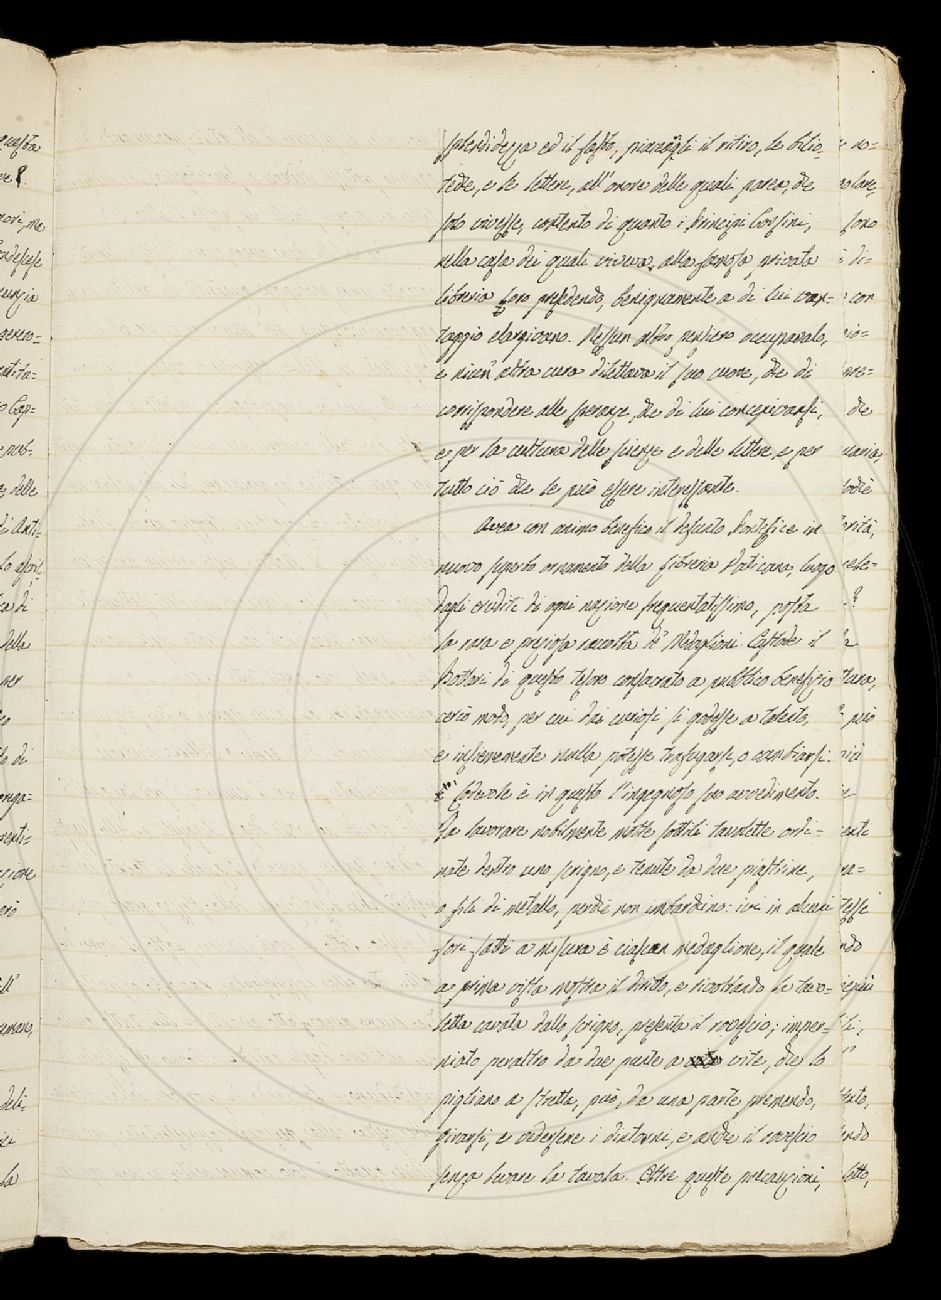 splendidezza ed il fasto, piacegli il ritiro, le biblio-
teche, e le lettere, all'onore delle quali parea, che
solo vivesse, contento di quanto i Principi Corsini,
nella casa dei quali viveva, alla scenota privata
libreria loro presedendo, benignamente a di lui van-
taggio elargivano. Nessun altro pensiero occupavalo,
e niun' altra cura dilettava il suo cuore, che di
corrispondere alle speranze, che di lui concepivansi,
e per la cultura delle scienze e delle lettere, e per
tutto ciò che le può essere interessante.
Avea con animo benefico il defunto Pontefice in
nuovo superbo ornamento della Libreria Vaticana, luogo
dagli eruditi di ogni nazione frequentatissimo, posta
la rara e preziosa raccolta de' Medaglioni. Custode il
Bottari di questo tesoro consacrato a pubblico benefizio
cercò modo, per cui dai curiosi si godesse a talento,
e insiememente nulla potesse trafugarsi, o cambiarsi.
Lodevole è in questo l'ingegnoso suo avvedimento.
Fa lavorare nobilmente molte sottili tavolette ordi-
nate dentro uno scrigno, e tenute da due piastrine,
o fili di metallo, perchè non imbardino: ivi in alcuni
fori fatti a misura è ciascun medaglione, il quale
a prima vista mostra il dritto, e rivoltando la tavo-
letta cavata dallo scrigno, presenta il rovescio; imper-
niato peraltro da due punte a vite, che lo
pigliano a stretta, può, da una parte premendo,
girarsi, e vedersene i dintorni, e anche il rovescio
senza levare la tavola. Oltre queste precauzioni,